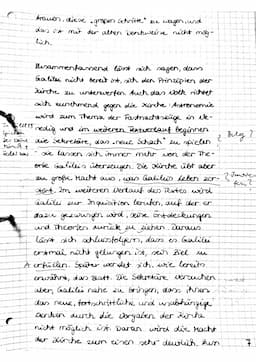 trauen, diese „großen Schritte" zu wagen und
das ist mit der alten Denkweise nicht mög-
lich.
Zusammenfassend lässt sich sagen, dass
Galilei nicht bereit ist, sich den Prinzipien der
Kirche zu unterwerfen. Auch das Volk richtet
sich zunehmend gegen die Kirche. Astronomie
wird zum Thema der Fastnachtszüge in Ve-
nedig und im weiteren Textverlauf beginnen
die Sekretäre, das „neue Schach" zu spielen
- sie lassen sich immer mehr von der The-
orie Galileis überzeugen. Die Kirche übt aber
zu große Macht aus, was Galileis Leben zer-
stört. Im weiteren Verlauf des Textes wird
Galilei zur Inquisition berufen, auf der er
dazu gezwungen wird, seine Entdeckungen
und Theorien zurück zu ziehen. Daraus
lässt sich schlussfolgern, dass es Galilei
erstmal nicht gelungen ist, sein Ziel zu
erfüllen. Später wendet sich, wie bereits
erwähnt, das Blatt. Die Sekretäre versuchen
aber, Galilei nahe zu bringen, dass ihnen
das neue, fortschrittliche und unabhängige
Denken durch die Vorgaben der Kirche
nicht möglich ist. Daran wird die Macht
der Kirche zum einen sehr deutlich, zum
Beleg?
7